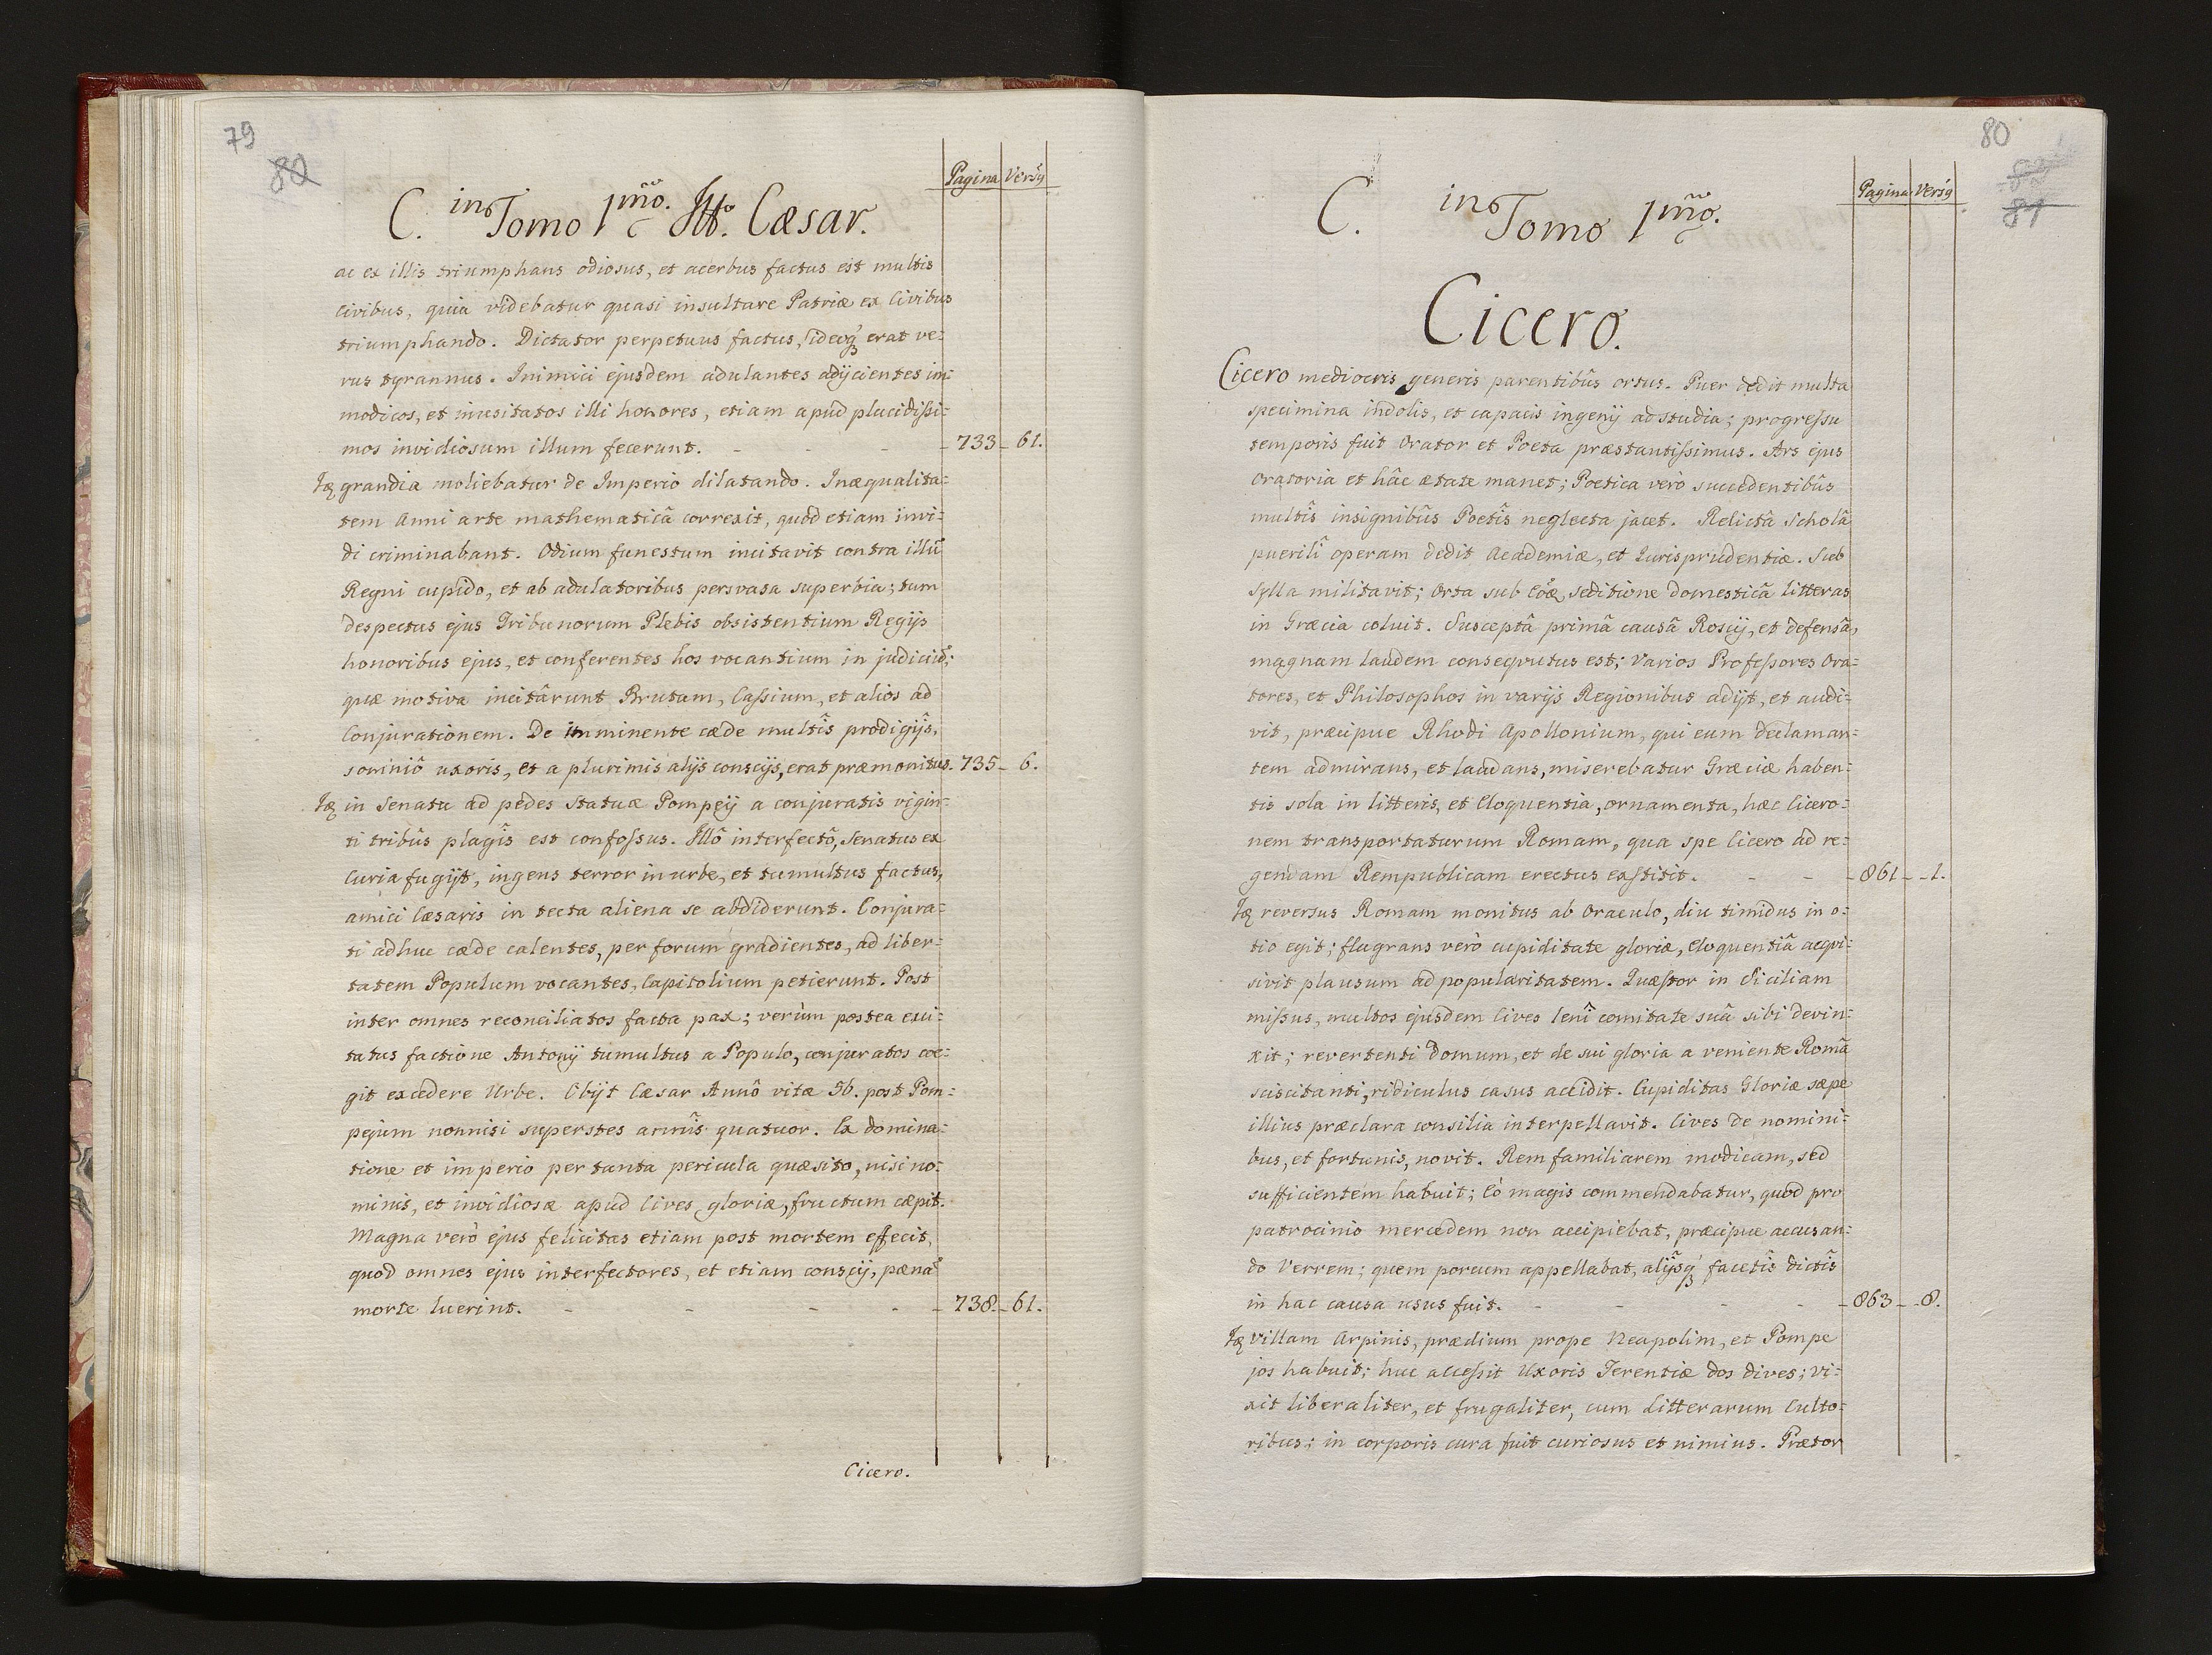 79
80
Pagina Versq
C. in Tomo 1mo. Itto. Cæsar.
ac ex illis triumphans odiosus, et acerbus factus est multis
Civibus, quia videbatur quasi insultare Patriæ ex Civibus
triumphando. Dictator perpetuus factus, ideoq3 erat ve:
rus tyrannus. Inimici ejusdem adulantes adijcientes im:
modicos, et inusitatos illi honores, etiam apud placidissi:
mos invidiosum illum fecerunt. - - - 733 - 61.
grandia moliebatur de Imperio dilatando. Inæqualita:
tem Anni arte mathematicâ correxit, quod etiam invi:
di criminabant. Odium funestum incitavit contra illũ
Regni cupido, et ab adulatoribus persvasa superbia; tum
despectus ejus Tribunorum Plebis obsistentium Regijs
honoribus ejus, et conferentes hos vocantium in judiciũ;
quæ motiva incitârunt Brutum, Cassium, et alios ad
Conjurationem. De imminente cæde multîs prodigijs,
somniô uxoris, et a plurimis alijs conscijs, erat præmonitus. 735 - 6.
in Senatu ad pedes statuæ Pompeij a conjuratis vigin:
ti tribûs plagîs est confossus. Illô interfectô, Senatus ex
Curia fugijt, ingens terror in urbe, et tumultus factus,
amici Cæsaris in tecta aliena se abdiderunt. Conjura:
ti adhuc cæde calentes, per forum gradientes, ad liber:
tatem Populum vocantes, Capitolium petierunt. Post
inter omnes reconciliatos facta pax; verùm postea exci:
tatus factione Antonij tumultus a Populo, conjuratos coe:
git excedere Urbe. Obijt Cæsar Annô vitæ 56. post Pom:
pejum nonnisi superstes annîs quatuor. Ex domina:
tione et imperio per tanta pericula quæsito, nisi no:
minis, et invidiosæ apud Cives gloriæ, fructum cæpit.
Magna verò ejus felicitas etiam post mortem effecit,
quod omnes ejus interfectores, et etiam conscij, pænâ
morte luerint. - - - - 738. - 61.
Cicero.
80
81
Pagina Versq
C. in Tomo 1mo.
Cicero.
Cicero mediocris generis parentibûs ortus. Puer dedit multa
specimina indolis, et capacis ingenij ad studia; progressu
temporis fuit Orator et Poeta præstantissimus. Ars ejus
Oratoria et hâc ætate manet; Poetica verò succedentibûs
multîs insignibûs Poetîs neglecta jacet. Relictâ Scholâ
puerilî operam dedit Academiæ, et Jurisprudentiæ. Sub
Sylla militavit; Orta sub seditione domesticâ litteras
in Græcia coluit. Susceptâ primâ causâ Roscij, et defensâ,
magnam laudem conseqvutus est; Varios Professores Ora:
tores, et Philosophos in varijs Regionibus adijt, et audi:
vit, præcipue Rhodi Apollonium, qui eum declaman:
tem admirans, et laudans, miserebatur Græciæ haben:
tis sola in litteris, et Eloquentia, ornamenta, hæc Cicero:
nem transportaturum Romam, qua spe Cicero ad re:
gendam Rempublicam erectus exstitit. - - - 861 - - 1.
reversus Romam monitus ab Oraculo, diu timidus in o:
tio egit; flagrans verò cupiditate gloriæ, Eloquentiâ acqvi:
sivit plausum ad popularitatem. Quæstor in Siciliam
missus, multos ejusdem Cives lenî comitate suâ sibi devin:
xit; revertenti domum, et de sui gloria a veniente Româ
sciscitanti, ridiculus casus accidit. Cupiditas Gloriæ sæpe
illius præclara consilia interpellavit. Cives de nomini:
bus, et fortunis, novit. Rem familiarem modicam, sed
sufficientem habuit; Eò magis commendabatur, quod pro
patrocinio mercedem non accipiebat, præcipue accusan:
do Verrem; quem porcum appellabat, alijsq3 facetîs dictîs
in hac causa usus fuit. - - - - 863 - - 8.
Villam Arpinis, prædium prope Neapolim, et Pompe
jos habuit; huc accessit Uxoris Terentiæ dos dives; vi:
xit liberaliter, et frugaliter, cum Litterarum Culto:
ribus; in corporis cura fuit curiosus et nimius. Prætor